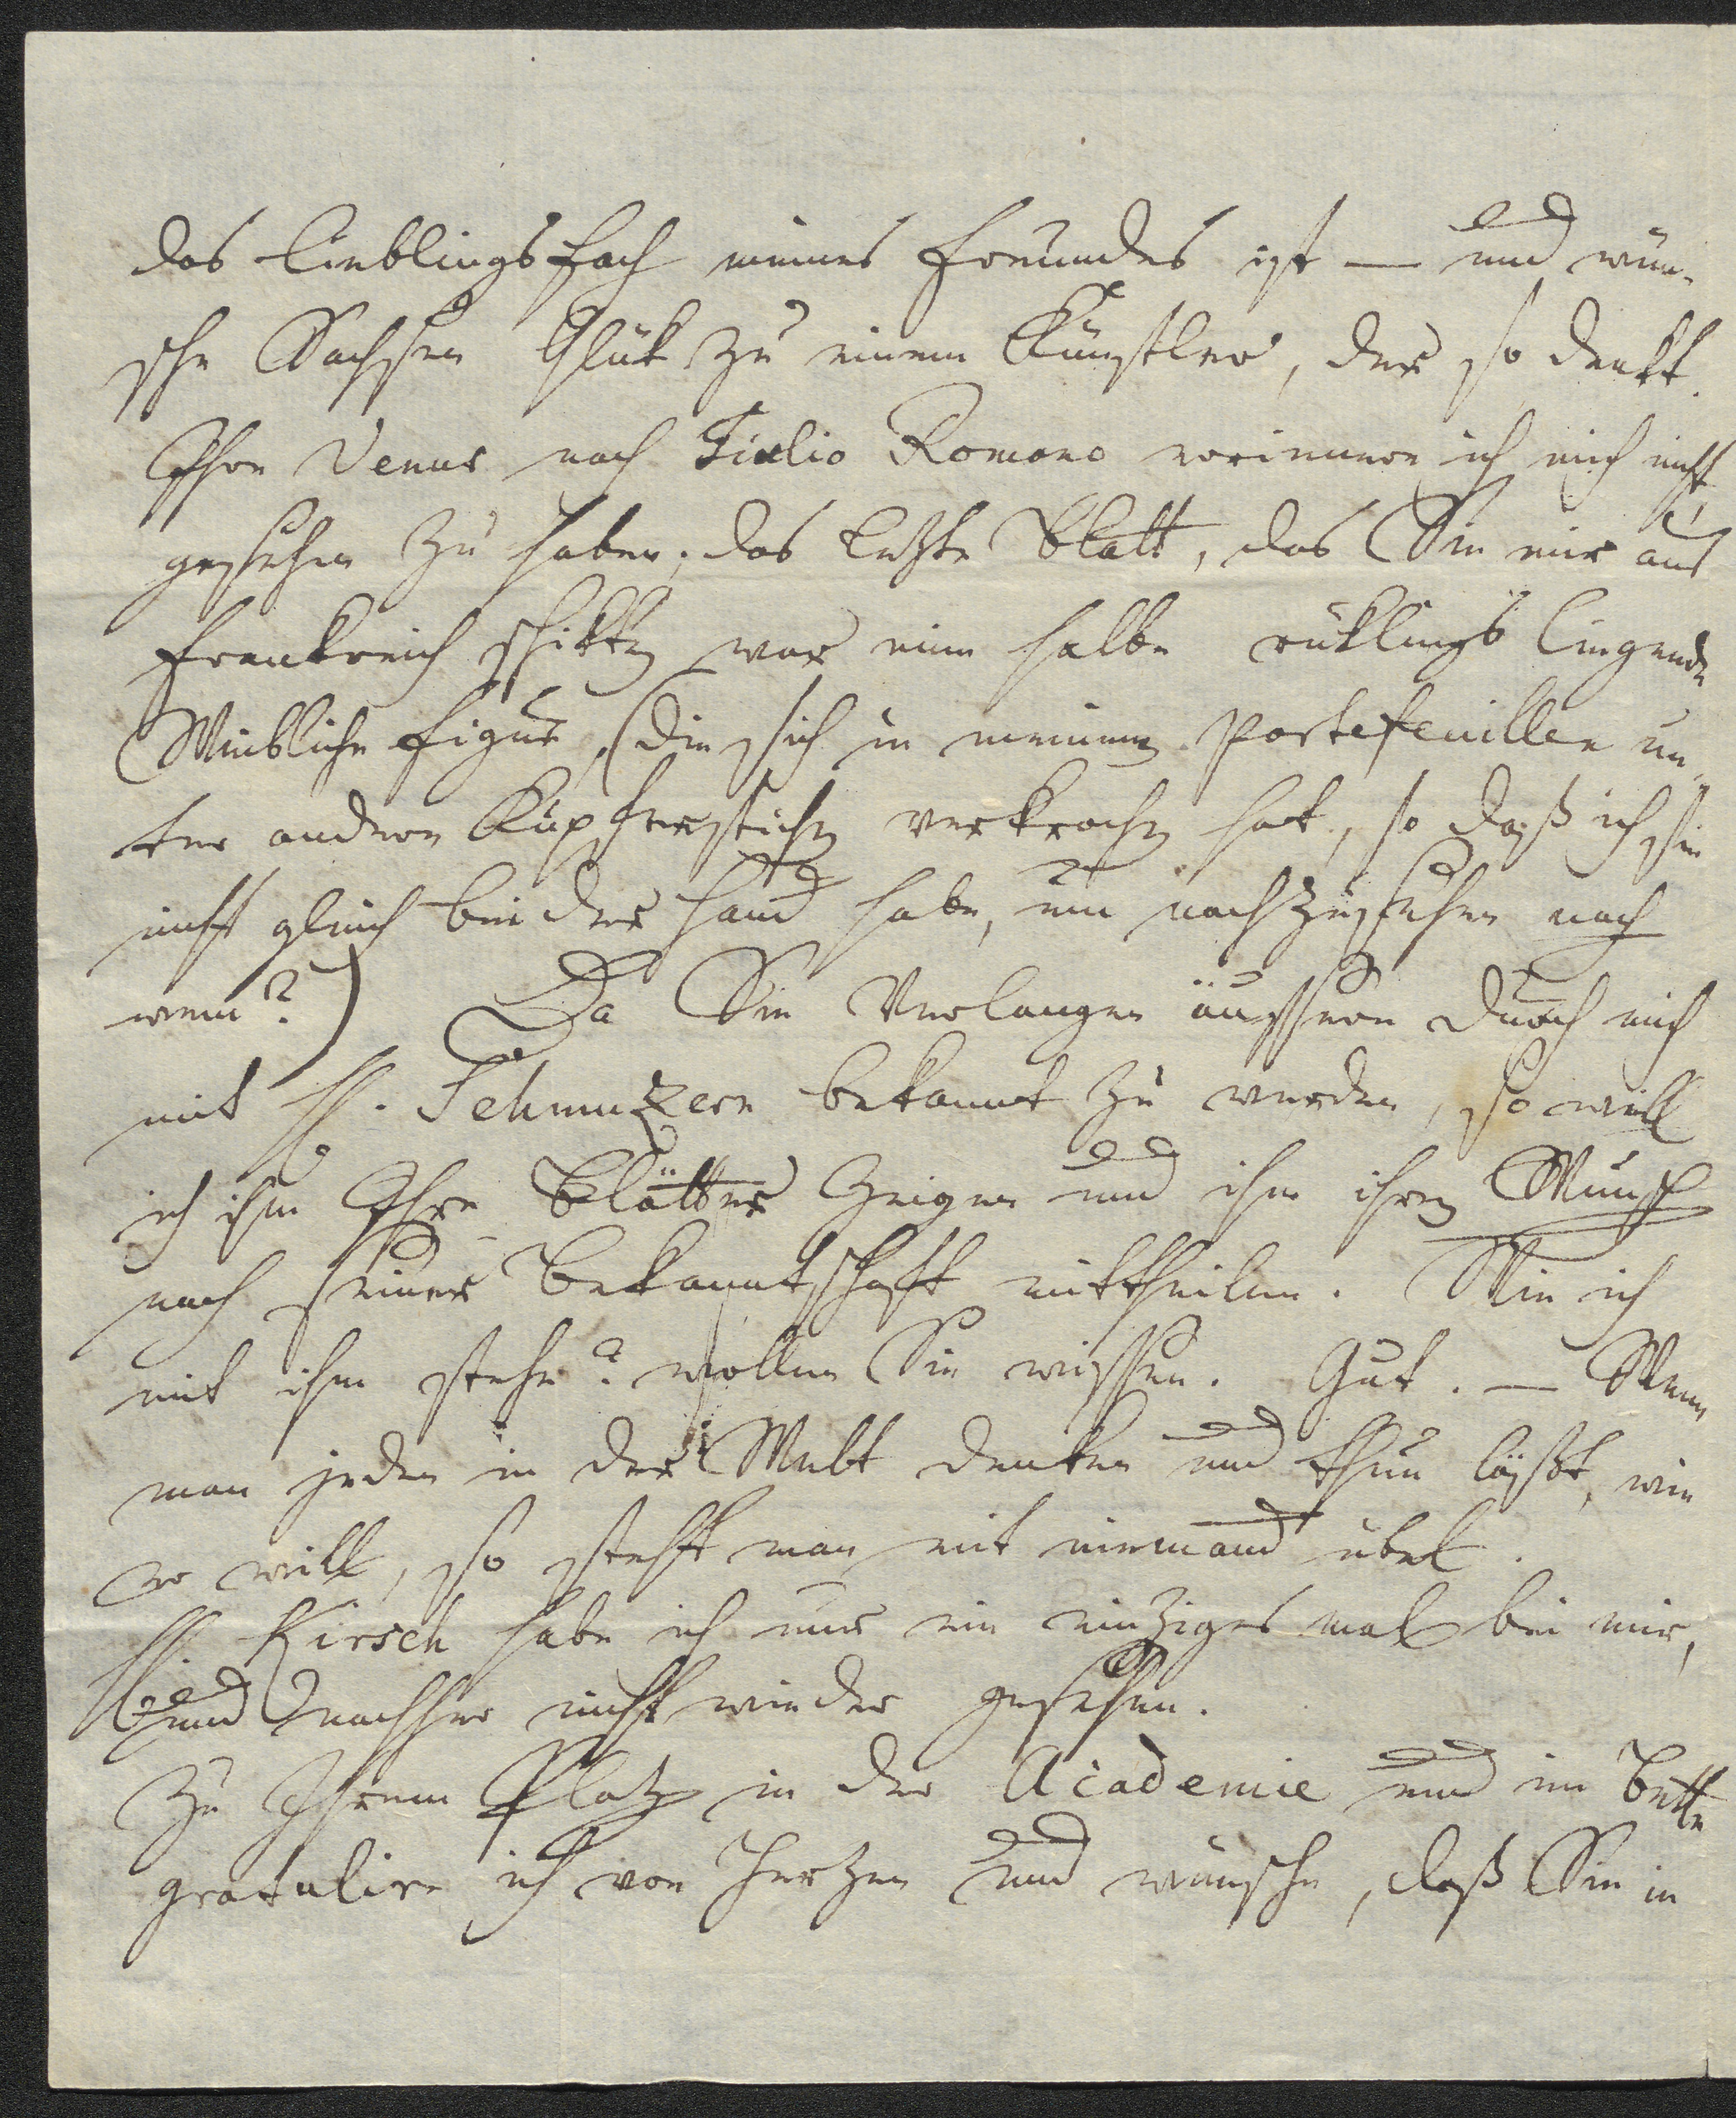 das Lieblingsfach meines Freundes ist — und wün-
sche Sachsen Glük zu einem Künstler, der so denkt.
Ihre Venus nach Giulio Romano erinnere ich mich nicht
gesehen zu haben; das letzte Blatt, das Sie mir aus
Frankreich schikten war eine halbe rüklings liegende
Weibliche Figur, (die sich in meinem Portefeuillen un-
ter andern Kupferstichen verkrochen hat, so daß ich sie
nicht gleich bei der Hand habe, um nachzusehen nach
wem?) Da Sie Verlangen äussern durch mich
mit H. Schmuzern bekannt zu werden, so will
ich ihm Ihre Blätter zeigen und ihm ihren Wunsch
nach seiner Bekanntschaft mittheilen. Wie ich
mit ihm stehe? wollen Sie wissen. Gut. — Wenn
man jeden in der Welt denken und thun läßt, wie
er will, so steht man mit niemand übel.
H. Kirsch habe ich nur ein einziges mal bei mir,
und nachher nicht wieder gesehen.
Zu Ihrem Platz in der Academie und im Bette
gratulire ich von Herzen und wünsche, daß Sie in